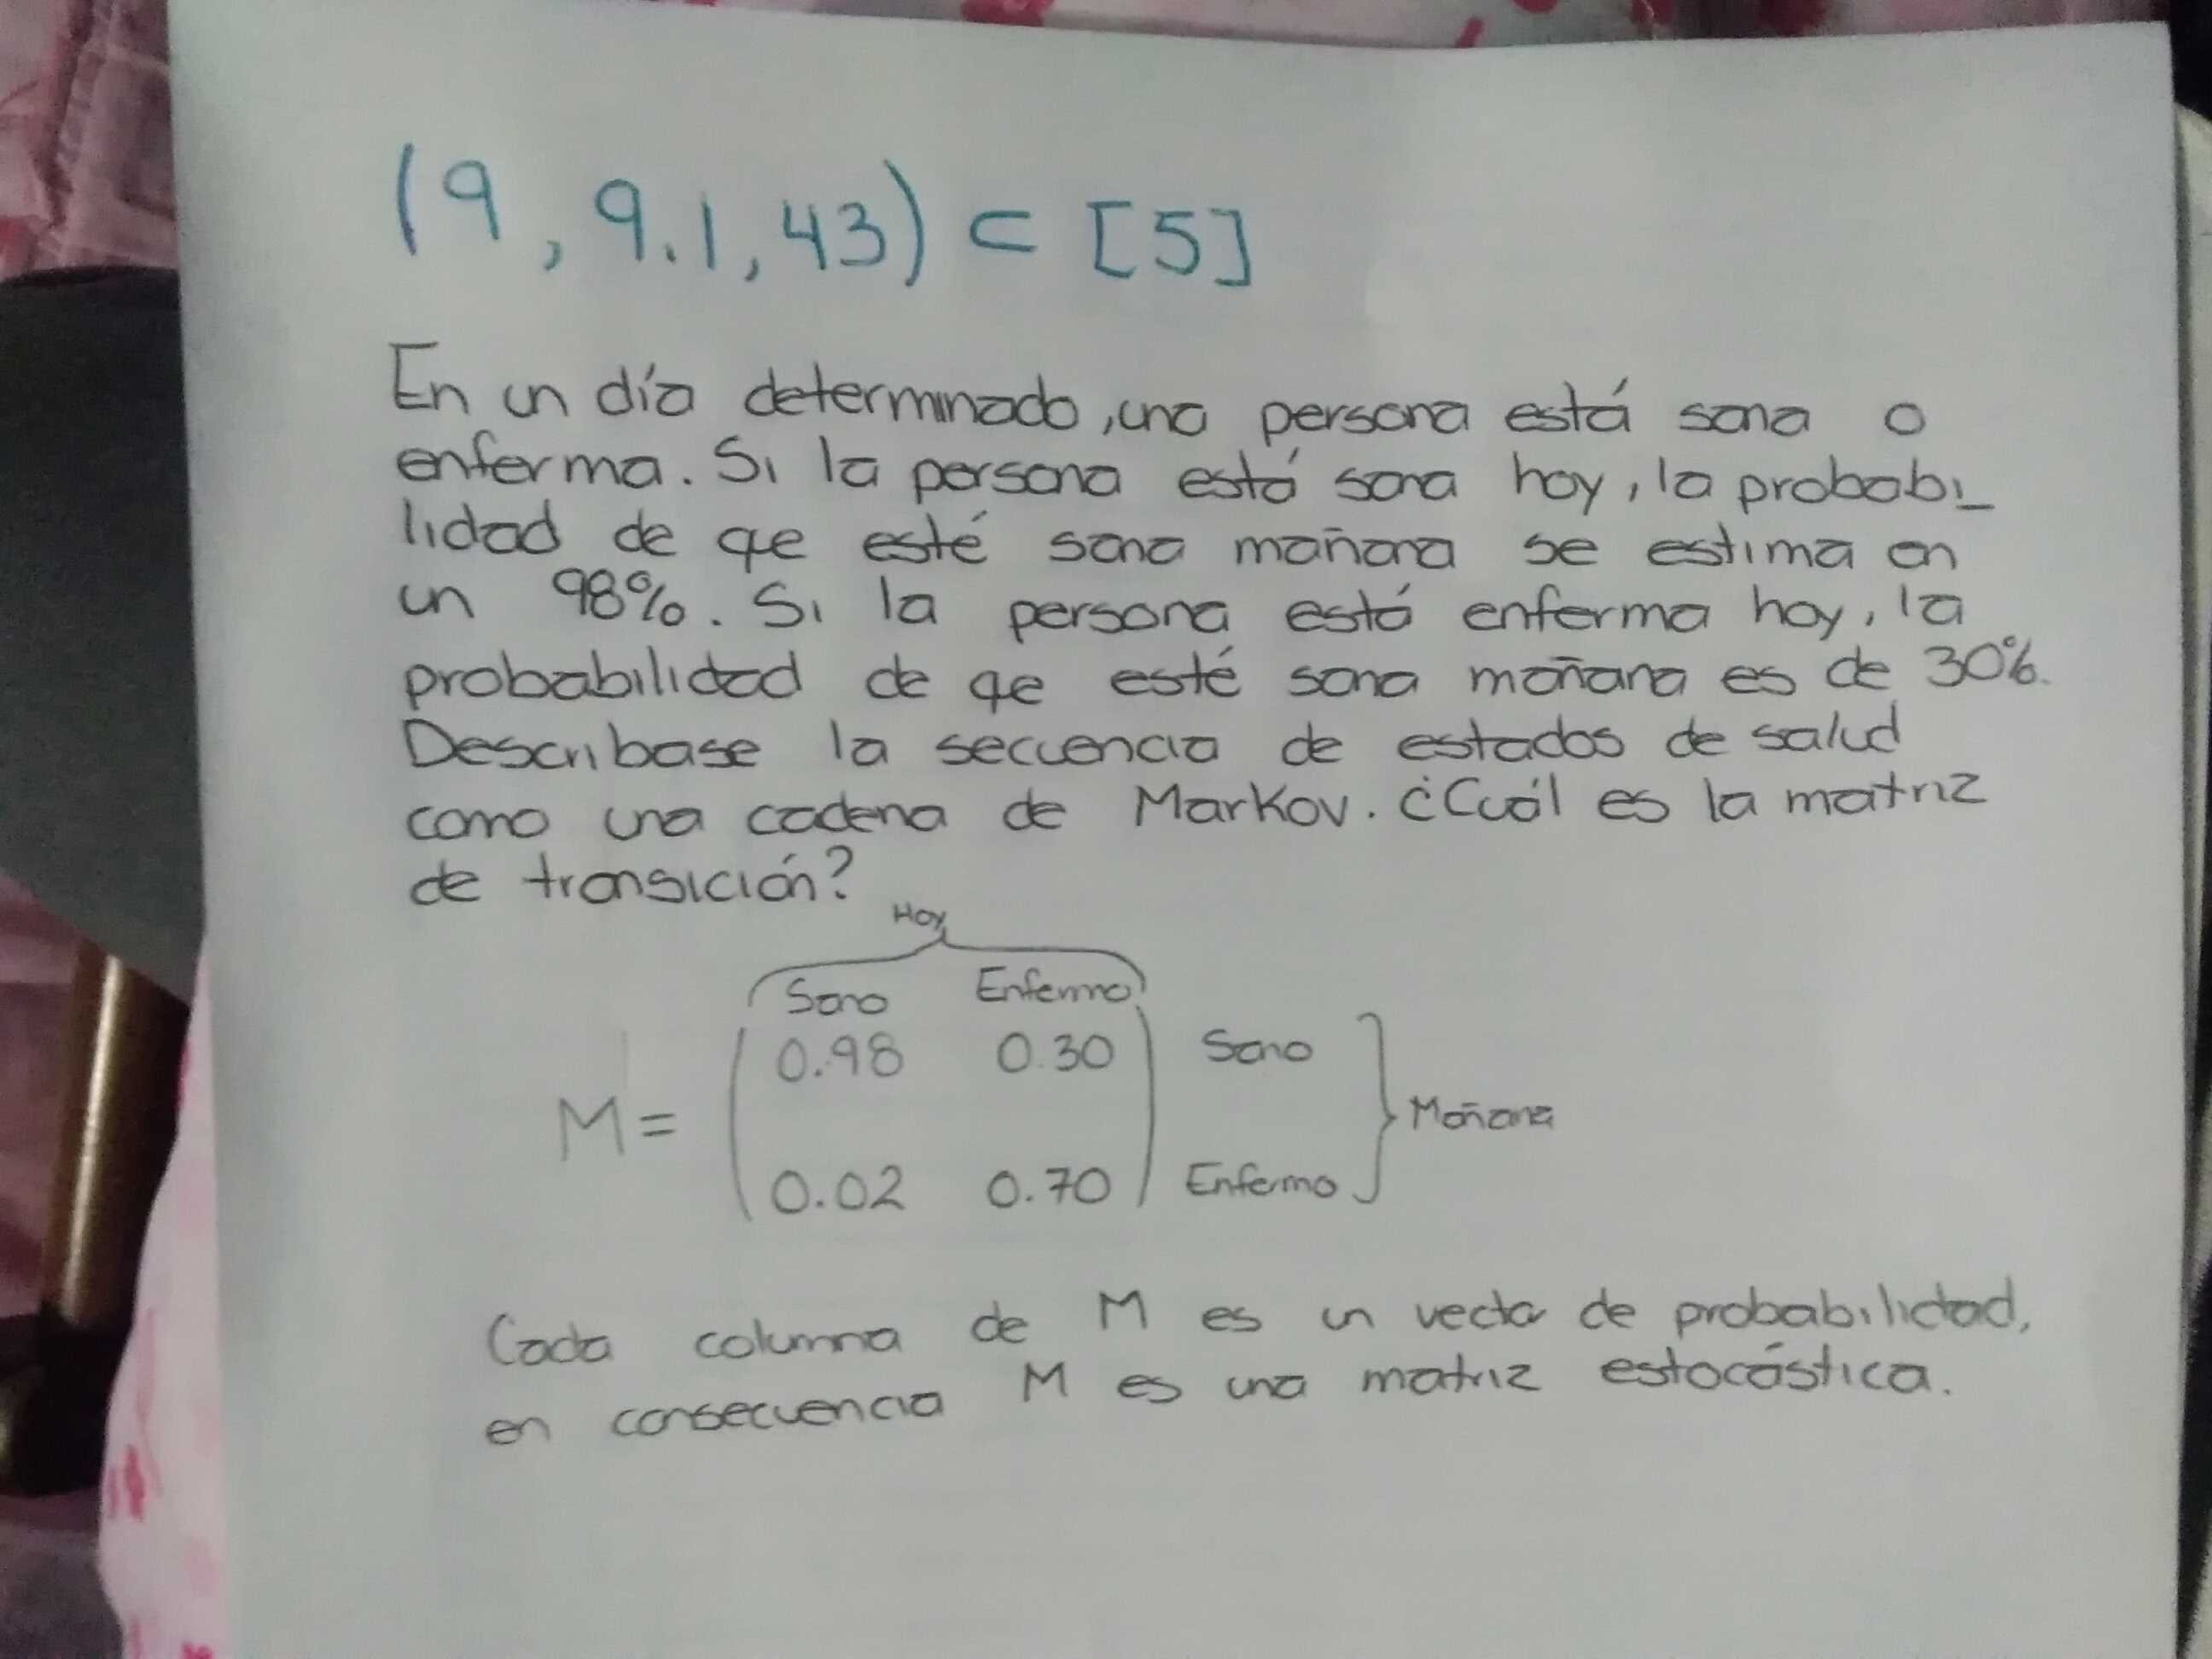 (9, 9.1, 43) ⊂ [5]
En un día determinado, una persona está sana o
enferma. Si la persona está sana hoy, la probabi_
lidad de qe esté sana mañana se estima en
un 98%. Si la persona está enferma hoy, la
probabilidad de qe esté sana mañana es de 30%.
Describase la secuencia de estados de salud
como una cadena de Markov. ¿Cuál es la matriz
de transición?
Hoy
Sano Enfermo
0.98 0.30 Sano
M= Mañana
0.02 0.70 Enfermo
Cada columna de M es un vector de probabilidad,
en consecuencia M es una matriz estocástica.